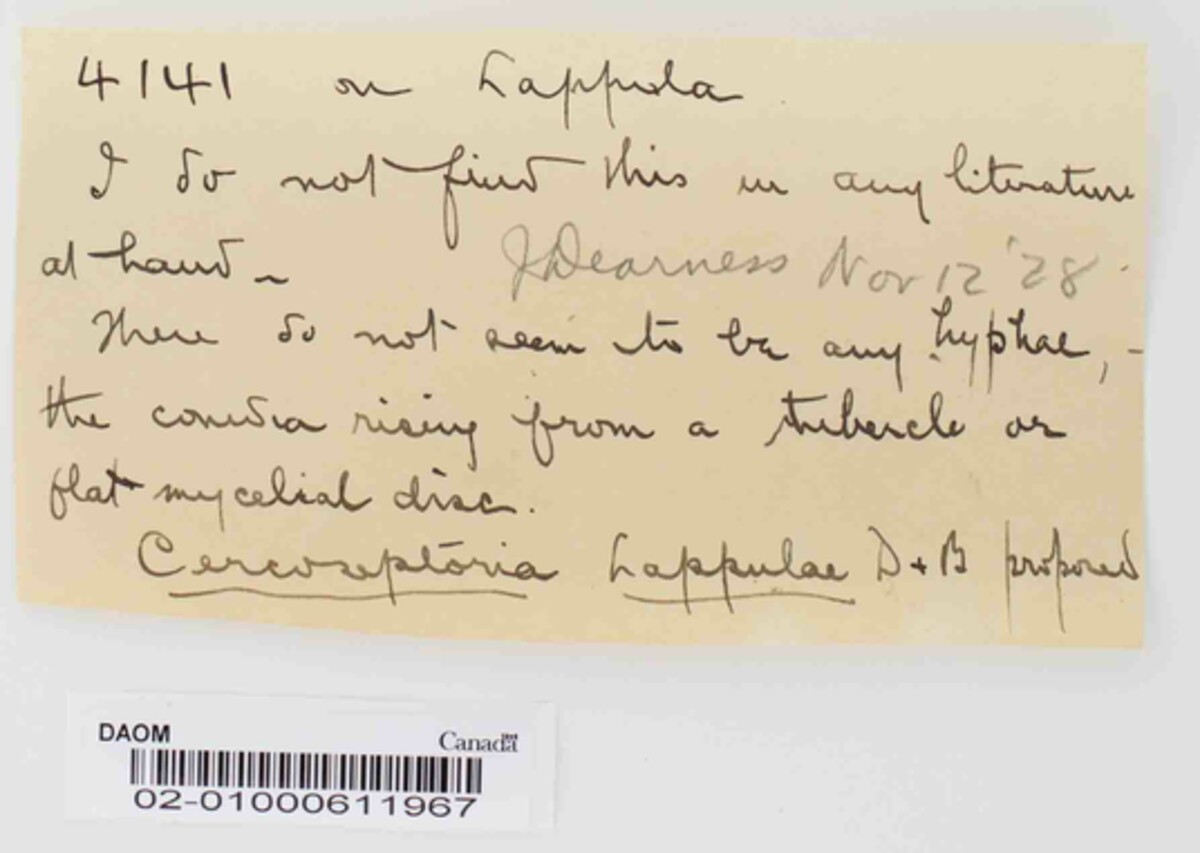 4141 on Lappula
I do not find this in any literature
at hand - J Dearness Nov 12 '28
There do not seem to be any hyphae, -
the conidia rising from a tubercle or
flat mycelial disc.
Cercoseptoria Lappulae D + B proposed
DAOM Canada
02-01000611967